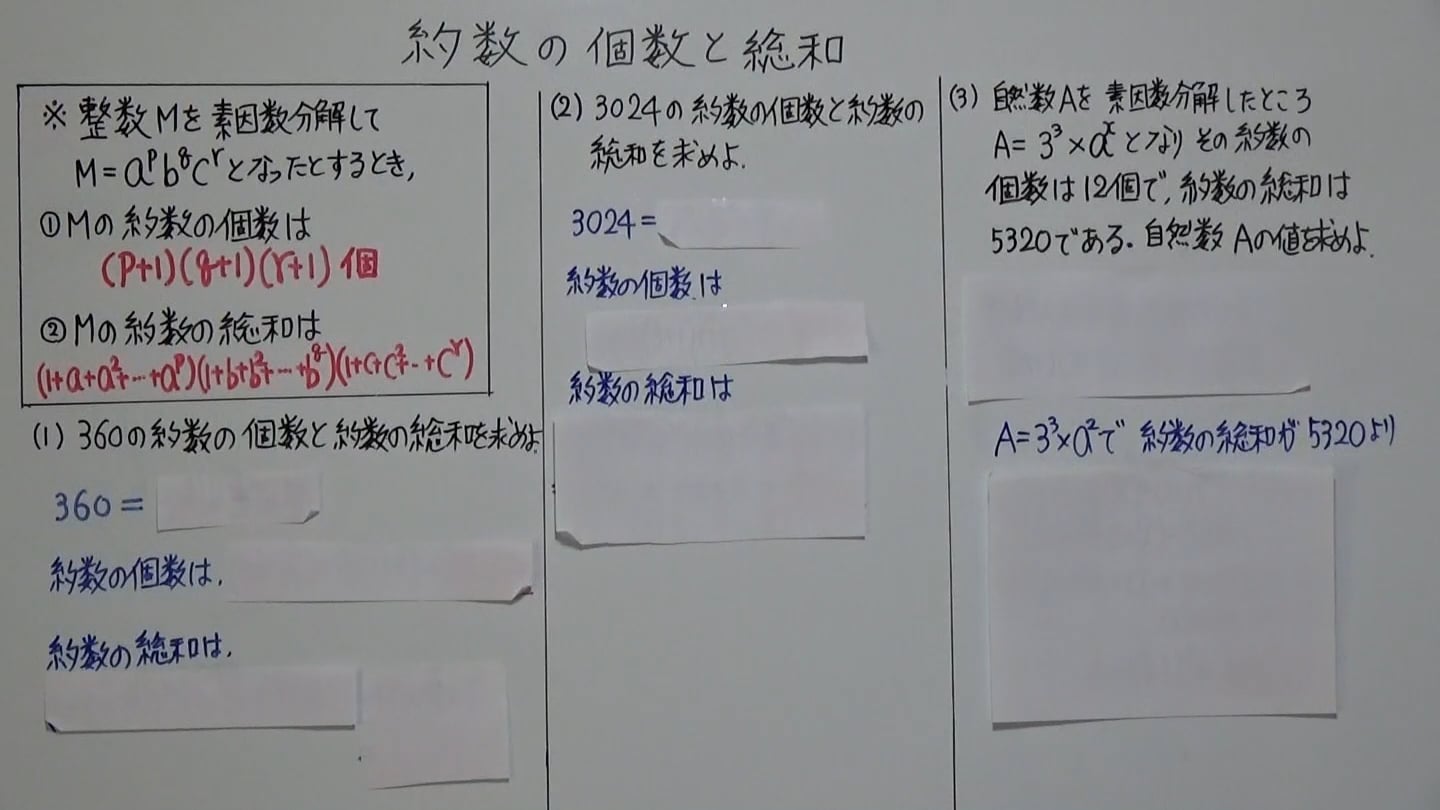 約数の個数と総和
※整数Mを素因数分解して
M=a^p b^q c^r となったとするとき,
①Mの約数の個数は
(p+1)(q+1)(r+1)個
②Mの約数の総和は
(1+a+a²+…+a^p)(1+b+b²+…+b^q)(1+c+c²+…+c^r)
(1) 360の約数の個数と約数の総和を求めよ.
360=
約数の個数は,
約数の総和は,
(2) 3024の約数の個数と約数の
総和を求めよ.
3024=
約数の個数は
約数の総和は
(3) 自然数Aを素因数分解したところ
A=3³×a^x となり その約数の
個数は12個で,約数の総和は
5320である.自然数Aの値を求めよ.
A=3³×a²で 約数の総和が5320より